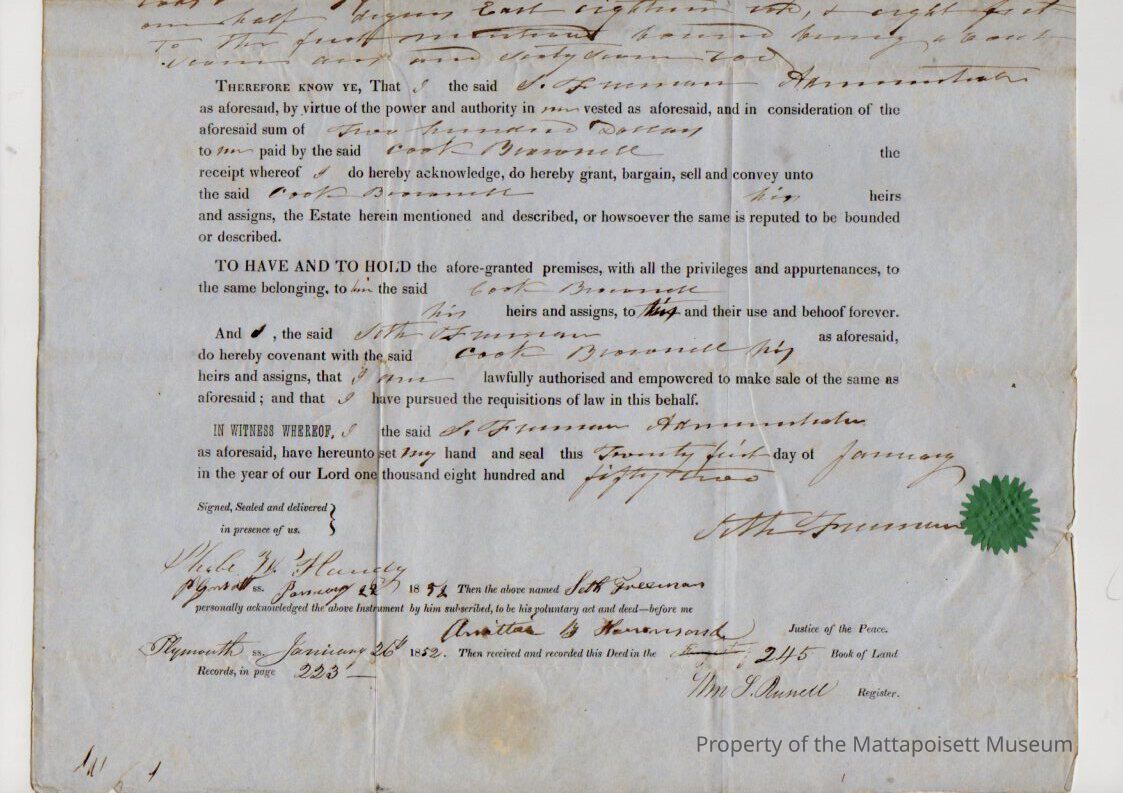 one half degrees East eighteen rods, & eight feet
to the first mentioned bound being about
THEREFORE KNOW YE, That I the said S. Freeman Administrator
as aforesaid, by virtue of the power and authority in me vested as aforesaid, and in consideration of the
aforesaid sum of Two hundred Dollars
to me paid by the said Cook Brownell the
receipt whereof I do hereby acknowledge, do hereby grant, bargain, sell and convey unto
the said Cook Brownell his heirs
and assigns, the Estate herein mentioned and described, or howsoever the same is reputed to be bounded
or described.
TO HAVE AND TO HOLD the afore-granted premises, with all the privileges and appurtenances, to
the same belonging, to him the said Cook Brownell
his heirs and assigns, to his and their use and behoof forever.
And I, the said Seth Freeman as aforesaid,
do hereby covenant with the said Cook Brownell his
heirs and assigns, that I am lawfully authorised and empowered to make sale of the same as
aforesaid; and that I have pursued the requisitions of law in this behalf.
IN WITNESS WHEREOF, I the said S. Freeman Administrator
as aforesaid, have hereunto set my hand and seal this Twenty first day of January
in the year of our Lord one thousand eight hundred and fifty two
Signed, Sealed and delivered
in presence of us.
Seth Freeman
Handy
Plymouth ss. January 22 1852 Then the above named Seth Freeman
personally acknowledged the above Instrument by him subscribed, to be his voluntary act and deed—before me
Hammond Justice of the Peace.
Plymouth ss. January 26th 1852. Then received and recorded this Deed in the 245 Book of Land
Records, in page 223
Wm S. Russell Register.
Property of the Mattapoisett Museum